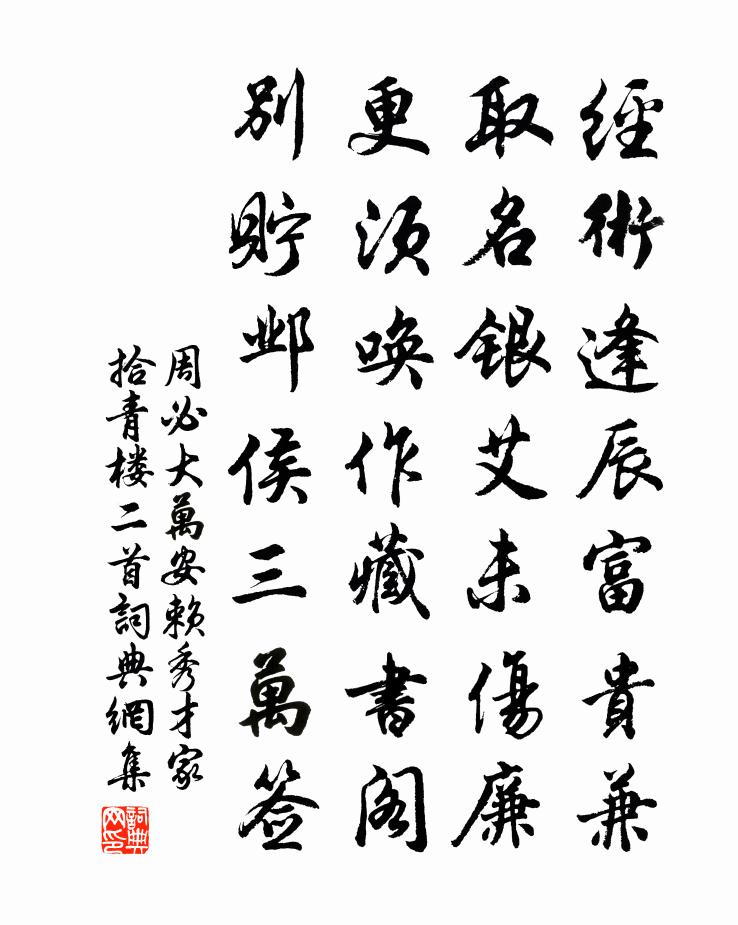 經術逢辰富貴兼
取名銀艾未傷廉
更須喚作藏書閣
別貯鄴侯三萬签
周必大萬安賴秀才家
拾青楼二首詞典網集
詞典网印